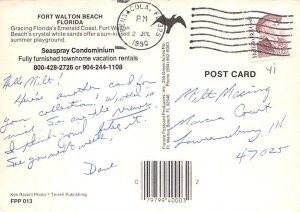 FORT WALTON BEACH
FLORIDA
Gracing Florida's Emerald Coast, Fort Walton
Beach's crystal white sands offer a sun-kissed
summer playground.
Seaspray Condominium
Fully furnished townhome vacation rentals
800-428-2726 or 904-244-1108
PENSACOLA, FL
PM
2 JUL
1990
POST CARD
41
Hello Milt!
Here's another card for
your collection! World is
I think you'll
See you next week.
Dave
Milt Missing
Marcus Court
Lawrenceburg, IN
47025
Ken Raveill Photo • Terrell Publishing
FPP 013
0
2
79799 40003